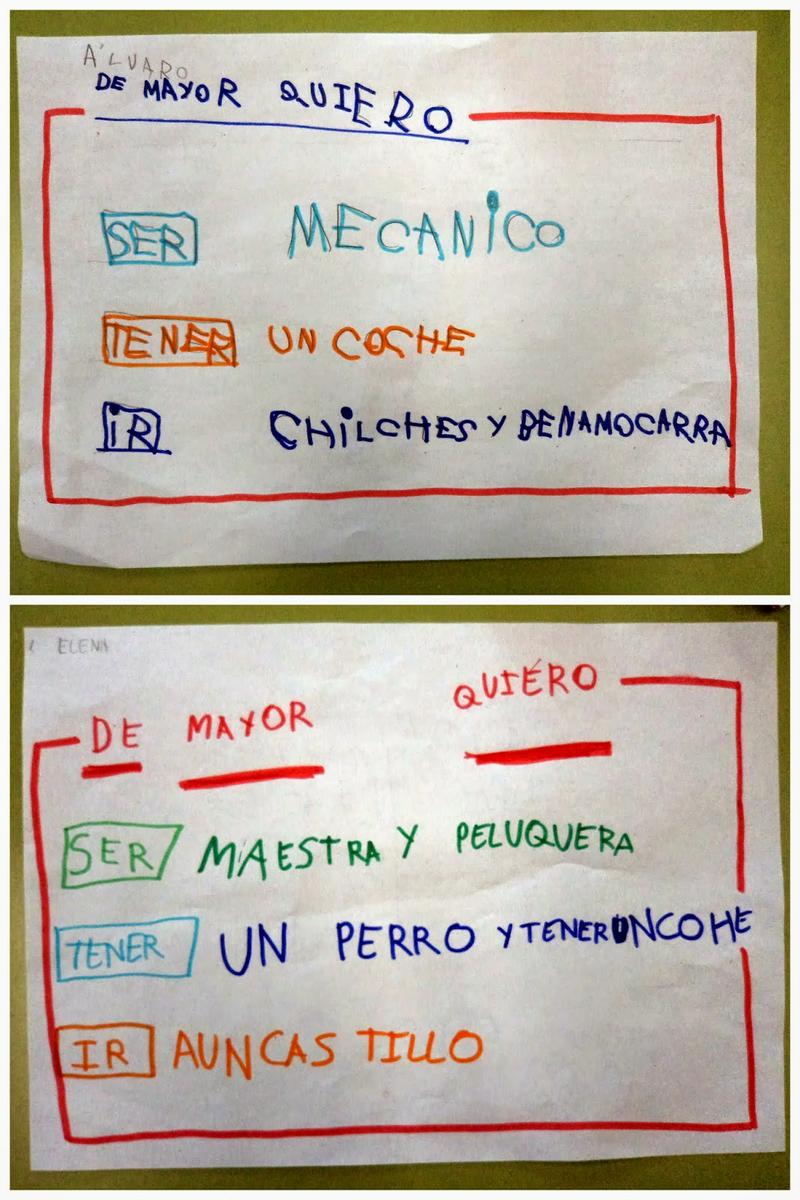 ÁLVARO
DE MAYOR QUIERO
SER MECANICO
TENER UN COCHE
IR CHILCHES Y BENAMOCARRA
ELENA
DE MAYOR QUIÉRO
SER MAESTRA Y PELUQUERA
TENER UN PERRO Y TENER UN COHE
IR AUNCAS TILLO